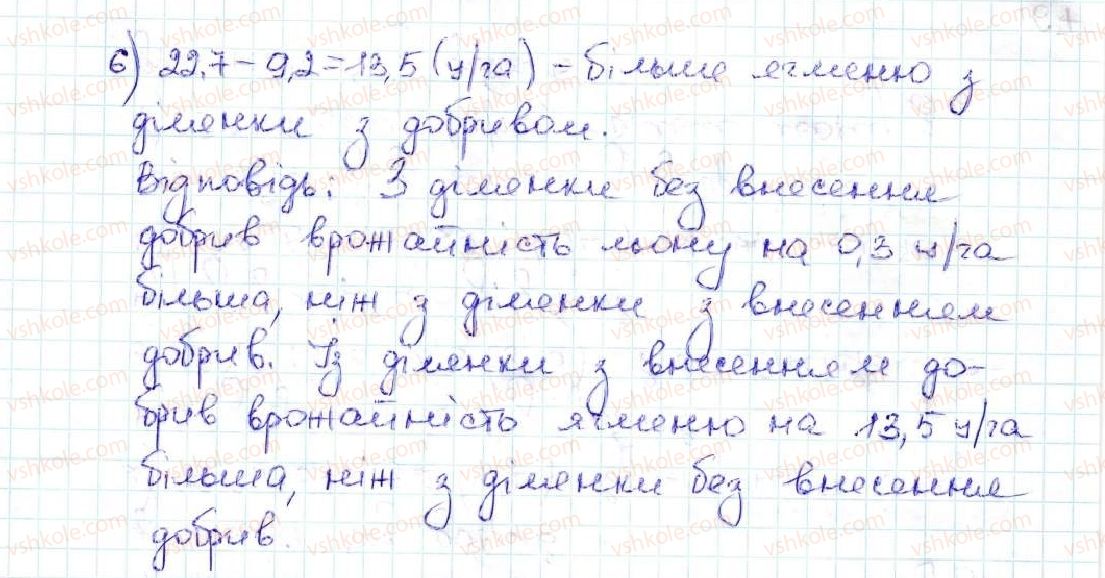 6) 22,7 - 9,2 = 13,5 (ц/га) - більше ячменю з
ділянки з добривом.
Відповідь: З ділянки без внесення
добрив врожайність льону на 0,3 ц/га
більша, ніж з ділянки з внесенням
добрив. Із ділянки з внесенням до-
брив врожайність ячменю на 13,5 ц/га
більша, ніж з ділянки без внесення
добрив.